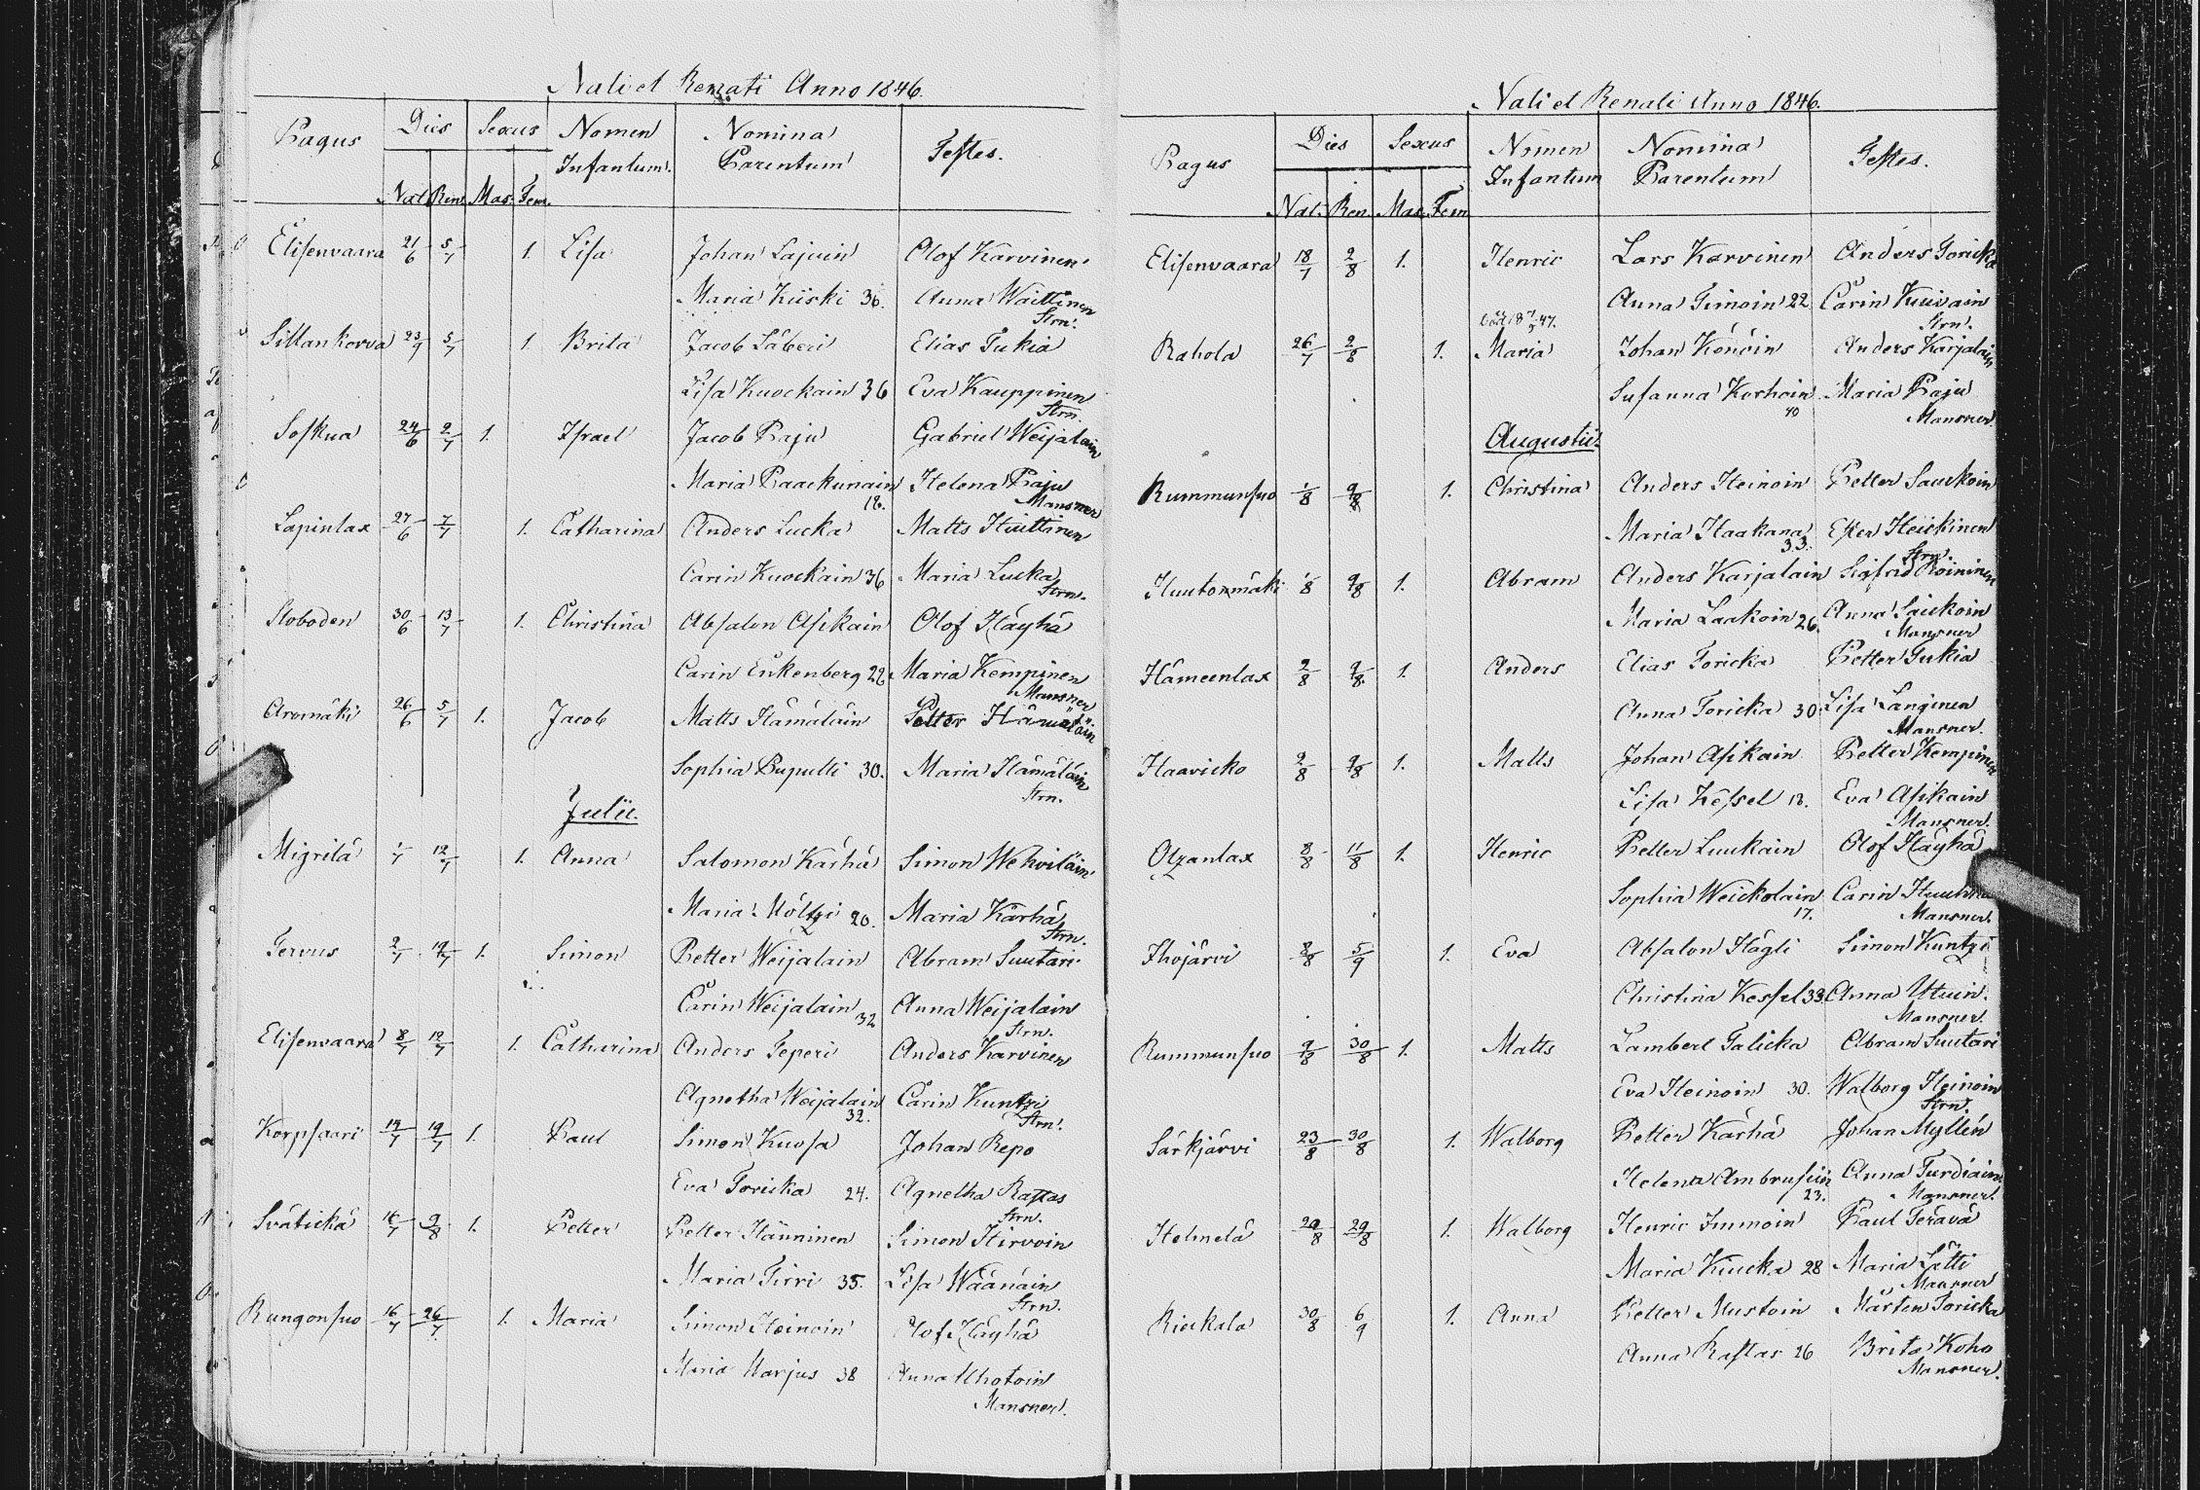 Nati et Renati Anno 1846.
Pagus Dies Sexus Nomen Infantum. Nomina Parentum Testes.
Nat. Ren. Mas. Fem.
Elisenvaara 21/6 5/7 1. Lisa Johan Lajuin Olof Karvinen
Maria Kiiski 36. Anna Waittinen
Strn.
Sillankorva 5/7 1. Brita Jacob Säberi Elias Tukia
Lisa Kuockain 36 Eva Kauppinen
Strn
Soskua 24/6 2/7 1. Israel Jacob Paju Gabriel Weijalain
Maria Paackunain 18. Helena Paju
Mansner
Lapinlax 27/6 7/7 1. Catharina Anders Lucka Matts Huittinen
Carin Kuockain 36 Maria Lucka
Strn.
Sloboden 30/6 13/7 1. Christina Absalon Asikain Olof Häyhä
Carin Enkenberg 22 Maria Kempinen
Mansner
Aromäki 26/6 5/7 1. Jacob Matts Hämäläin Petter Hämäläin
Sophia Puputti 30. Maria Hämäläin
Strn.
Julii.
Migrilä 1/7 12/7 1. Anna Salomon Kärhä Simon Wehviläin
Maria Höltzi 20. Maria Kärhä
Strn.
Tervus 2/7 12/7 1. Simon Petter Weijalain Abram Suutari
Carin Weijalain 32 Anna Weijalain
Strn.
Elisenvaara 8/7 12/7 1. Catharina Anders Teperi Anders Karvinen
Agnetha Weijalain 32. Carin Kuntzi
Strn.
Korpsaari 14/7 19/7 1. Paul Simon Kuosa Johan Repo
Eva Toricka 24. Agnetha Rastas
Strn.
Svätickä 9/8 1. Petter Petter Hänninen Simon Hirvoin
Maria Tirri 35. Lisa Wäänäin
Strn.
Rungonsuo 16/7 26/7 1. Maria Simon Heinoin Olof Häyhä
Maria Marjus 38 Anna Uhotoin
Mansner.
Nati et Renati Anno 1846.
Pagus Dies Sexus Nomen Infantum Nomina Parentum Testes.
Nat. Ren. Mas. Fem
Elisenvaara 18/7 2/8 1. Henric Lars Karvinen Anders Toricka
Anna Timoin 22 Carin Kuisain
Strn.
Rahola 26/7 2/8 1. Maria Johan Könöin Anders Karjalain
Susanna Korhoin 40 Maria Paju
Mansner
Augustii.
Rummunsuo 1/8 9/8 1. Christina Anders Heinoin Petter Saukoin
Maria Haakana 33. Ester Heickinen
Strn.
Huutonmäki 1/8 9/8 1. Abram Anders Karjalain Sigfrid Roininen
Maria Laakoin 26. Anna Saukoin
Mansner
Hämeenlax 2/8 9/8 1. Anders Elias Toricka Petter Tukia
Anna Toricka 30. Lisa Länginen
Mansner.
Haavicko 2/8 9/8 1. Matts Johan Asikain Petter Kempinen
Lisa Kessel 18. Eva Asikain
Mansner.
Olzanlax 8/8 11/8 1. Henric Petter Luukain Olof Häyhä
Sophia Weickolain 17. Carin
Mansner.
Ihojärvi 8/8 5/9 1. Eva Absalon Hägli Simon Kuntzi
Christina Kessel 33. Anna Utuin.
Mansner.
Rummunsuo 9/8 30/8 1. Matts Lambert Talicka Abram Suutari
Eva Heinoin 30. Walborg Heinoin
Strn.
Särkjärvi 23/8 30/8 1. Walborg Petter Kärhä Johan Myllén
Helena Ambrusiin 23. Anna Turdiain
Mansner.
Helmelä 29/8 29/8 1. Walborg Henric Immoin Paul Terävä
Maria Kiucka 28 Maria Lätti
Mansner
Riekala 30/8 6/9 1. Anna Petter Mustoin Mårten Toricka
Anna Rastas 26 Brita Koho
Mansner.